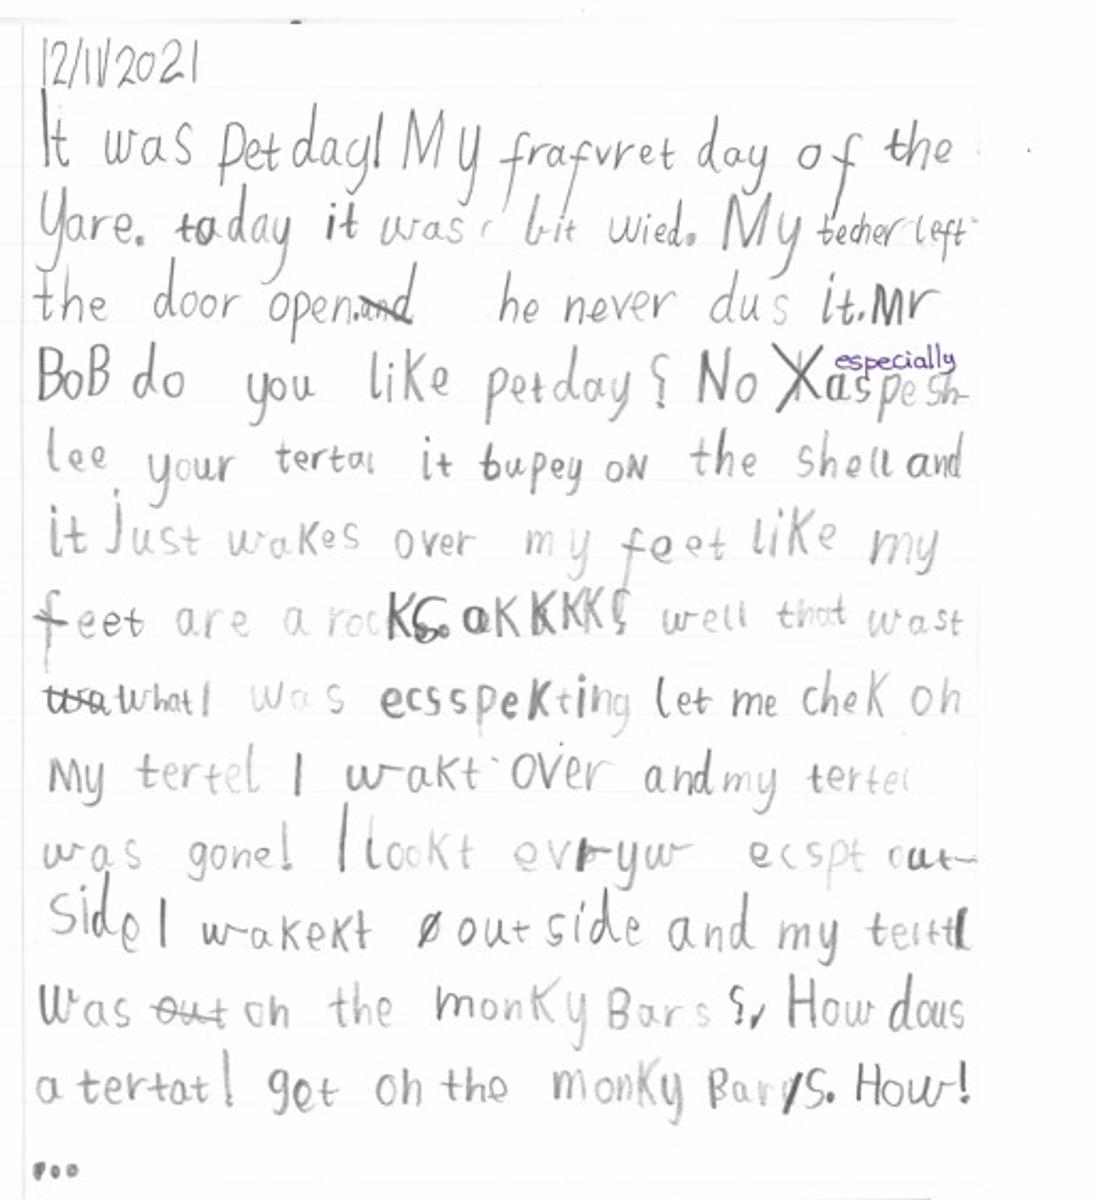 12/11/2021
It was Pet day! My frafvret day of the
Yare. today it was bit wied. My techer left
the door open.and he never dus it. Mr
BoB do you like petday? No X especially aspesh-
lee your tertal it bupey on the shell and
it Just wakes over my feet like my
feet are a rocKs. aKKKK? well that wast
wa what I was ecsspeKting let me cheK oh
My tertel I wakt over and my tertel
was gone! I lookt evryw ecspt out-
side I wakekt out side and my tertl
Was out on the monKy Bars?, How dous
a tertatl get on the monKy Bar/s. How!
...